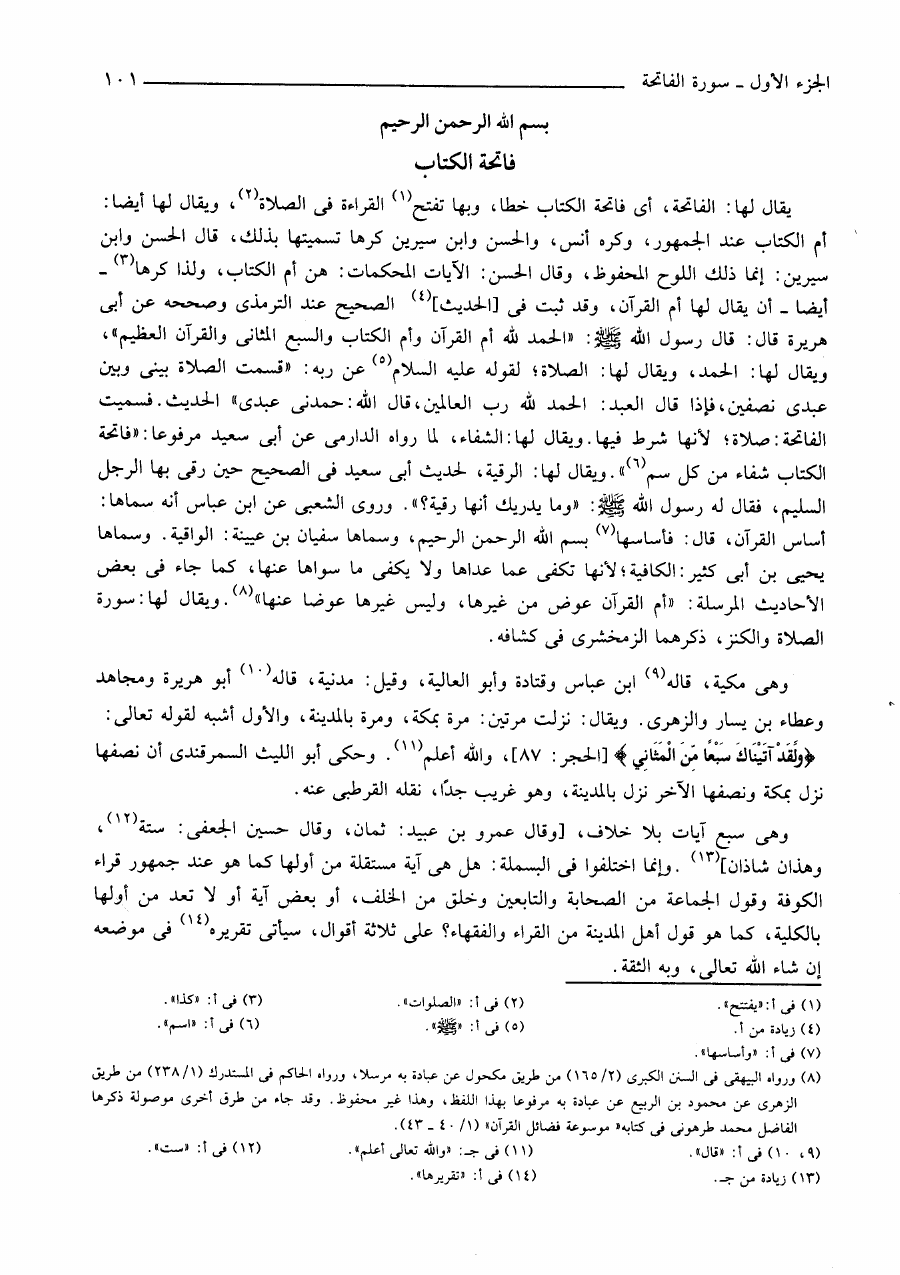 الجزء الأول ـ سورة الفاتحة ١٠١
بسم الله الرحمن الرحيم
فاتحة الكتاب
يقال لها: الفاتحة، أى فاتحة الكتاب خطا، وبها تفتح(١) القراءة فى الصلاة(٢)، ويقال لها أيضا:
أم الكتاب عند الجمهور، وكره أنس، والحسن وابن سيرين كرها تسميتها بذلك، قال الحسن وابن
سيرين: إنما ذلك اللوح المحفوظ، وقال الحسن: الآيات المحكمات: هن أم الكتاب، ولذا كرها(٣) ـ
أيضا ـ أن يقال لها أم القرآن، وقد ثبت فى [الحديث](٤) الصحيح عند الترمذى وصححه عن أبى
هريرة قال: قال رسول الله ﷺ: «الحمد لله أم القرآن وأم الكتاب والسبع المثانى والقرآن العظيم»،
ويقال لها: الحمد، ويقال لها: الصلاة؛ لقوله عليه السلام(٥) عن ربه: «قسمت الصلاة بينى وبين
عبدى نصفين،فإذا قال العبد: الحمد لله رب العالمين،قال الله:حمدنى عبدى» الحديث.فسميت
الفاتحة:صلاة؛ لأنها شرط فيها.ويقال لها:الشفاء، لما رواه الدارمى عن أبى سعيد مرفوعا:«فاتحة
الكتاب شفاء من كل سم(٦)».ويقال لها: الرقية، لحديث أبى سعيد فى الصحيح حين رقى بها الرجل
السليم، فقال له رسول الله ﷺ: «وما يدريك أنها رقية؟». وروى الشعبى عن ابن عباس أنه سماها:
أساس القرآن، قال: فأساسها(٧) بسم الله الرحمن الرحيم، وسماها سفيان بن عيينة: الواقية. وسماها
يحيى بن أبى كثير:الكافية؛لأنها تكفى عما عداها ولا يكفى ما سواها عنها، كما جاء فى بعض
الأحاديث المرسلة: «أم القرآن عوض من غيرها، وليس غيرها عوضا عنها»(٨).ويقال لها:سورة
الصلاة والكنز، ذكرهما الزمخشرى فى كشافه.
وهى مكية، قاله(٩) ابن عباس وقتادة وأبو العالية، وقيل: مدنية، قاله(١٠) أبو هريرة ومجاهد
وعطاء بن يسار والزهرى. ويقال: نزلت مرتين: مرة بمكة، ومرة بالمدينة، والأول أشبه لقوله تعالى:
﴿وَلَقَدْ آتَيْنَاكَ سَبْعًا مِّنَ الْمَثَانِي﴾ [الحجر: ٨٧]، والله أعلم(١١). وحكى أبو الليث السمرقندى أن نصفها
نزل بمكة ونصفها الآخر نزل بالمدينة، وهو غريب جدًا، نقله القرطبى عنه.
وهى سبع آيات بلا خلاف، [وقال عمرو بن عبيد: ثمان، وقال حسين الجعفى: ستة(١٢)،
وهذان شاذان](١٣).وإنما اختلفوا فى البسملة: هل هى آية مستقلة من أولها كما هو عند جمهور قراء
الكوفة وقول الجماعة من الصحابة والتابعين وخلق من الخلف، أو بعض آية أو لا تعد من أولها
بالكلية، كما هو قول أهل المدينة من القراء والفقهاء؟ على ثلاثة أقوال، سيأتى تقريره(١٤) فى موضعه
إن شاء الله تعالى، وبه الثقة.
(١) فى أ:«يفتتح». (٢) فى أ: «الصلوات». (٣) فى أ: «كذا».
(٤) زيادة من أ. (٥) فى أ: «ﷺ». (٦) فى أ: «اسم».
(٧) فى أ: «وأساسها».
(٨) ورواه البيهقى فى السنن الكبرى (٢/ ١٦٥) من طريق مكحول عن عبادة به مرسلا، ورواه الحاكم فى المستدرك (١/ ٢٣٨) من طريق
الزهرى عن محمود بن الربيع عن عبادة به مرفوعا بهذا اللفظ، وهذا غير محفوظ. وقد جاء من طرق أخرى موصولة ذكرها
الفاضل محمد طرهونى فى كتابه« موسوعة فضائل القرآن» (١/ ٤٠ ـ ٤٣).
(٩، ١٠) فى أ: «قال». (١١) فى جـ: «والله تعالى أعلم». (١٢) فى أ: «ست».
(١٣) زيادة من جـ. (١٤) فى أ: «تقريرها».